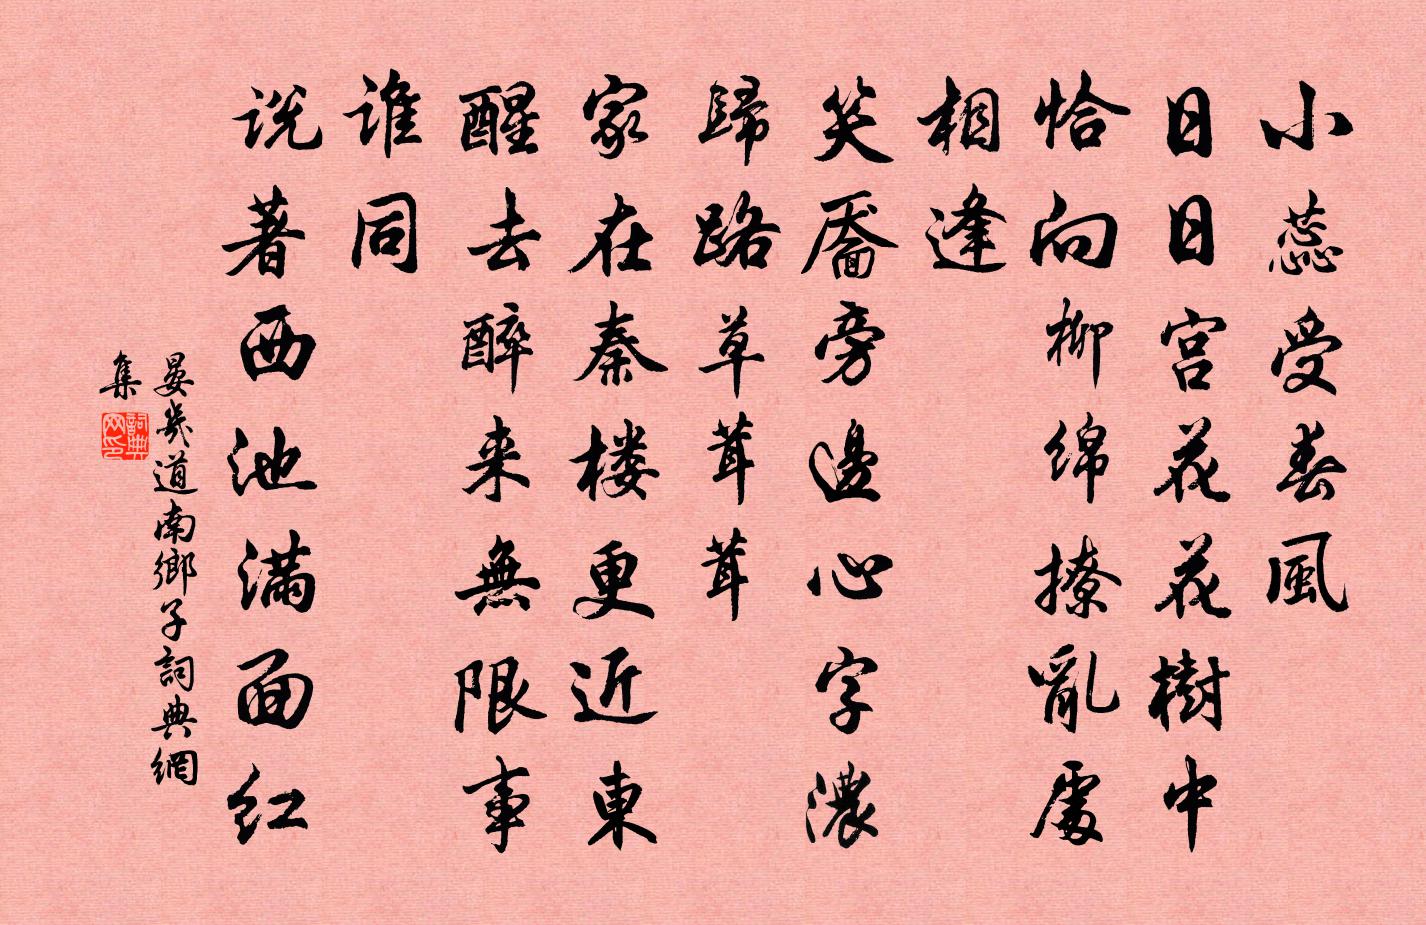 小蕊受春風
日日宮花花樹中
恰向柳綿撩亂處
相逢
笑靨旁邊心字濃
歸路草茸茸
家在秦楼更近東
醒去醉来無限事
誰同
说著西池满面红
晏幾道南鄉子詞典網
集
詞典
网印